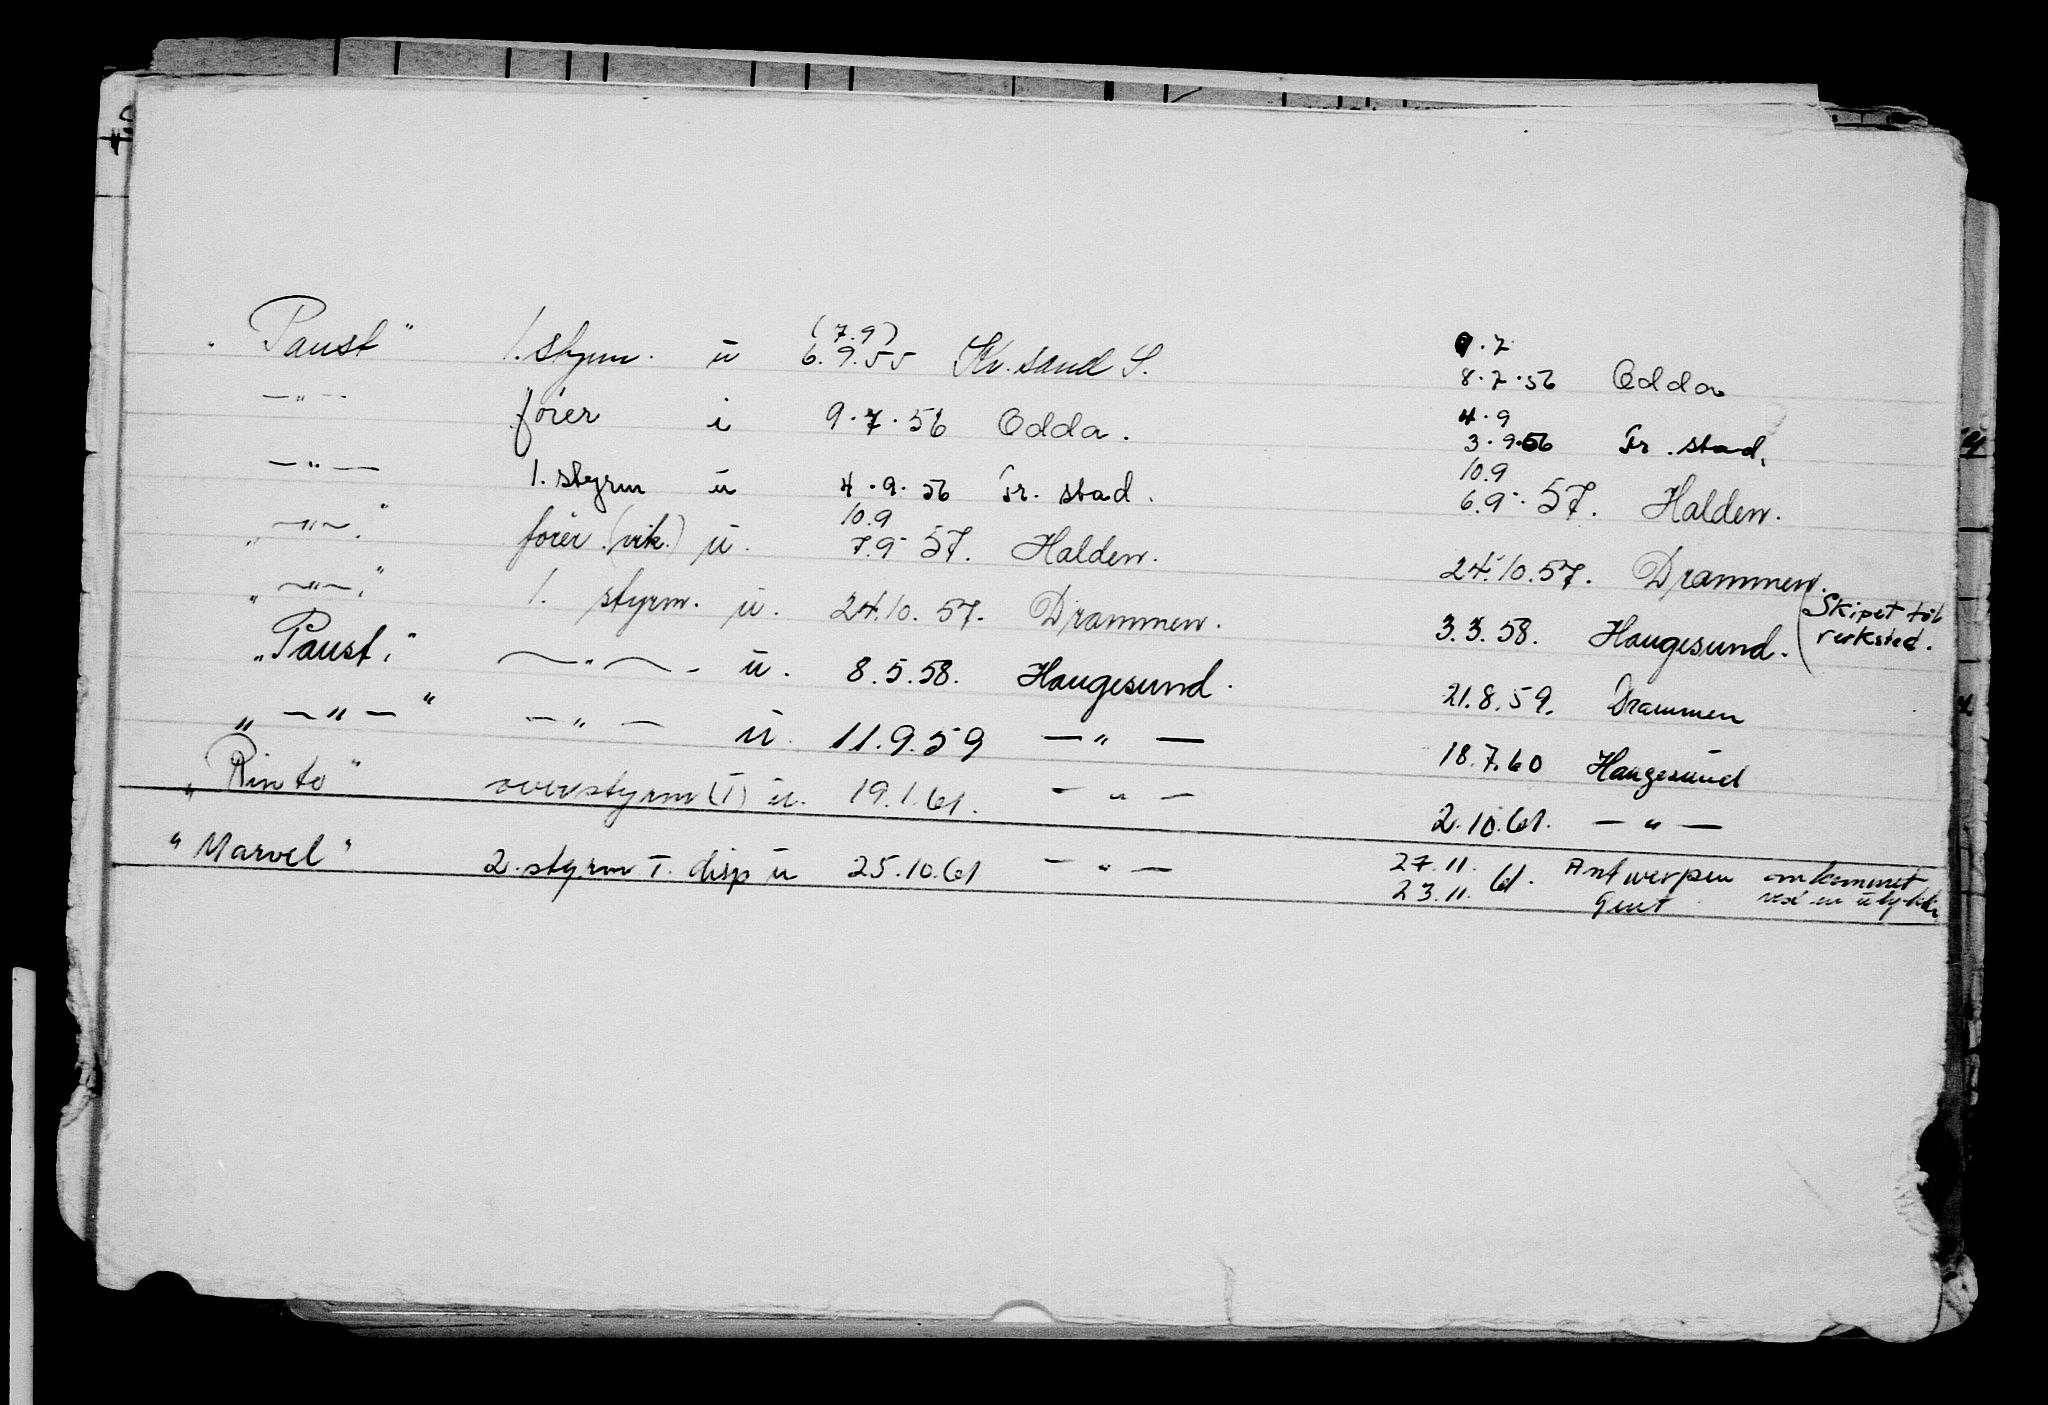 "Paust" 1. styrm. u (7.9) 6.9.55 Kr.sand S. 9.7 8.7.56 Odda
—"— fører i 9.7.56 Odda. 4.9 3.9.56 Fr.stad.
—"— 1. styrm u 4.9.56 Fr.stad. 10.9 6.9.57. Halden.
"—"—." fører (vik.) u. 10.9 7.9.57. Halden. 24.10.57. Drammen.
"—"—." 1. styrm. u. 24.10.57. Drammen. 3.3.58. Haugesund. (Skipet til verksted.
"Paust." —"—. u. 8.5.58. Haugesund. 21.8.59. Drammen
"—"—" —"— u. 11.9.59 —"— 18.7.60 Haugesund
"Rinto" overstyrm (I) u. 19.1.61. —"— 2.10.61. —"—
"Marvel" 2. styrm I. disp u 25.10.61 —"— 27.11. 23.11. 61. Antwerpen Gent omkommet ved en ulykke